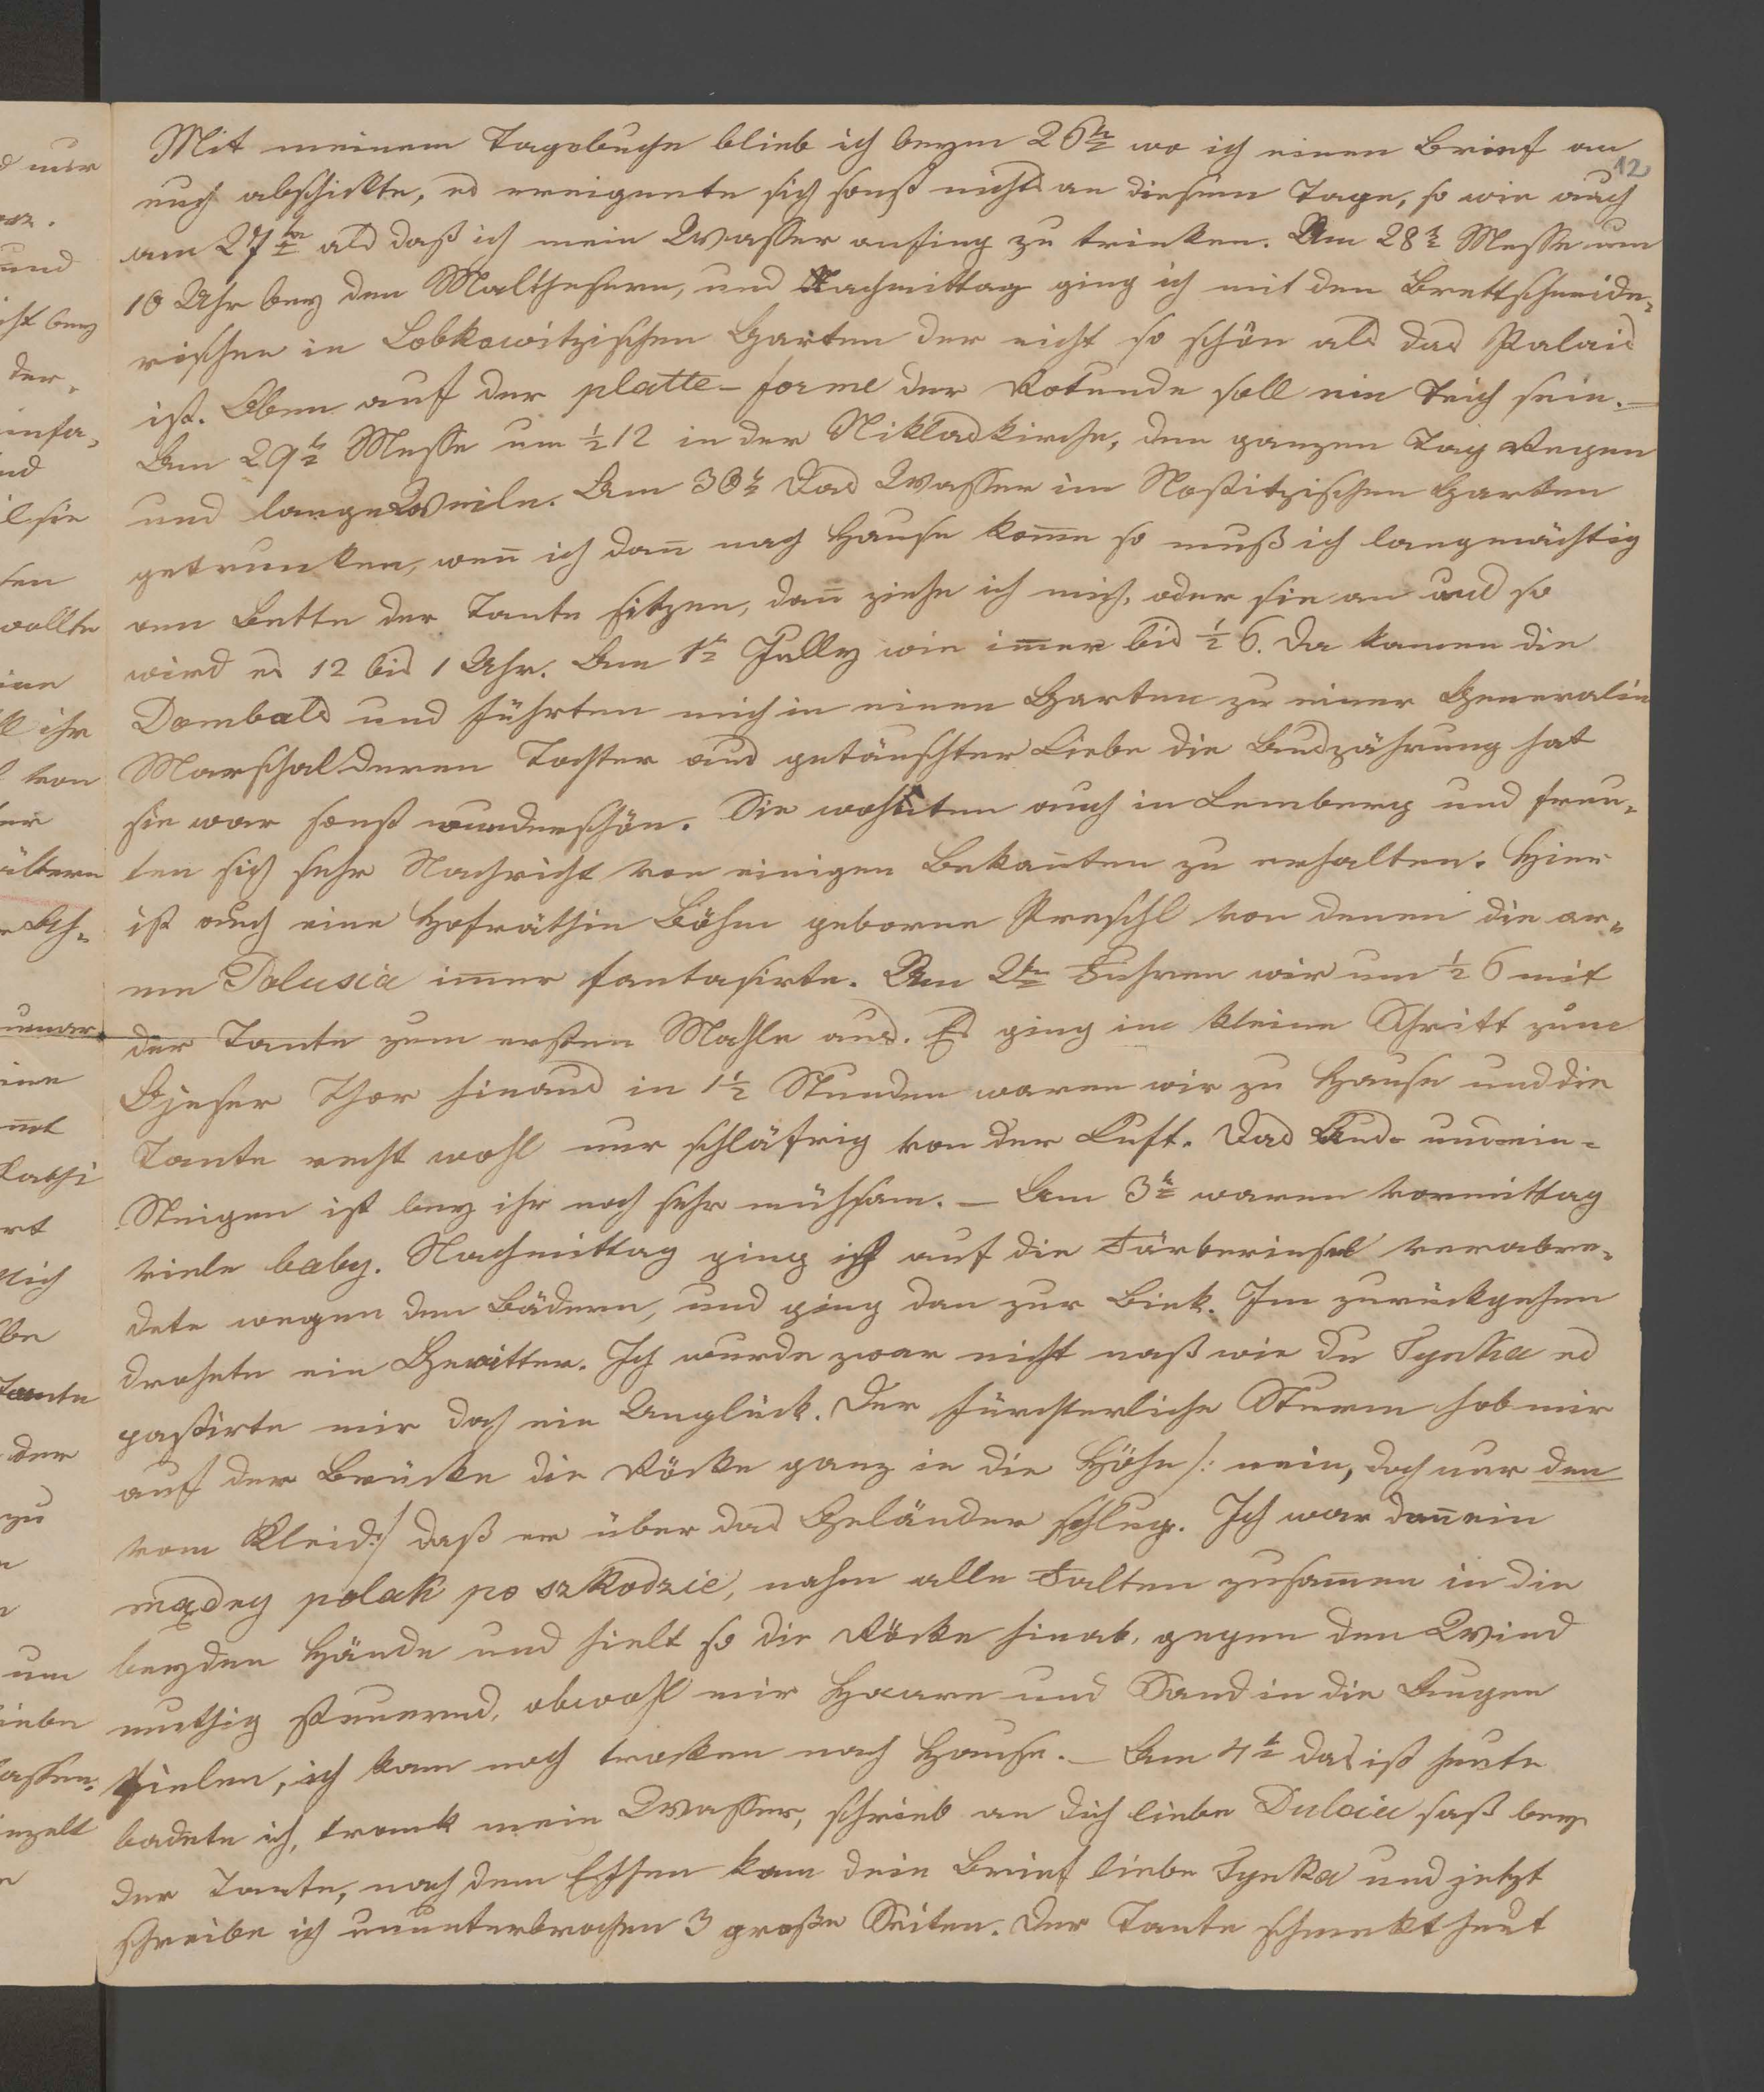 Mit meinem Tagebuche blieb ich beym 26ten wo ich einen Brief an
12
euch abschikte, es ereignete sich sonst nichts an diesem Tage, so wie auch
am 27ten als daß ich mein Wasser anfing zu trinken. Am 28t Messe um
10 Uhr bey den Malthesern, und Nachmittag ging ich mit den Brettschneide-
rischen in Lobkowitzischen Garten der nicht so schön als das Palais
ist. Oben auf der platte-forme der Rotunde soll ein Teich sein. –
Am 29t Messe um ½12 in der Niklaskirche, den ganzen Tag Regen
und langeWeile. Am 30t das Wasser im Nostitzischen Garten
getrunken, weñ ich dañ nach Hause kom̄e so muß ich langmächtig
am Bette der Tante sitzen, dañ ziehe ich mich, oder sie an und so
wird es 12 bis 1 Uhr. Am 1t Jully wie im̄er bis ½6. Da kamen die
Dombals und führten mich in einen Garten zu einer Generalin
Marschal deren Tochter aus getäuschter Liebe die Auszährung hat
sie war sonst wunderschön. Sie wohnten auch in Lemberg und freu-
ten sich sehr Nachricht von einigen Bekañten zu erhalten. Hier
ist auch eine Hofräthin Böhm geborne Preschl von denen die ar-
me Polusia im̄er fantasirte. Am 2ten Fuhren wir um ½6 mit
der Tante zum ersten Mahle aus. Es ging im kleine Schritt zum
Ojeser Thor hinaus in 1½ Stunden waren wir zu Hause und die
Tante recht wohl nur schläfrig von der Luft. Das Aus- und ein-
Steigen ist bey ihr noch sehr mühsam. – Am 3t waren vormittag
viele baby. Nachmittag ging ich auf die Färberinsel verabre-
dete wegen den Bädern, und ging dan zur Biek. Im zurückgehen
drohete ein Gewitter. Ich wurde zwar nicht naß wie du Tynka es
passirte mir doch ein Unglück. Der fürchterliche Sturm hob mir
auf der Brücke die Röcke ganz in die Höhe /: nein, doch nur den
vom Kleid :/ daß er über das Geländer schlug. Ich war dañ ein
mądry polak po szkodzie, nahm alle Falten zusam̄en in die
beyden Hände und hielt so die Röcke hinab, gegen den Wind
muthig steuernd, obwohl mir Haare und Sand in die Augen
fielen, ich kam noch trocken nach Hause. – Am 4t das ist heute
badete ich, trank mein Wasser, schrieb an dich liebe Dulcia saß bey
der Tante, nach dem Essen kam dein Brief liebe Tynka und jetzt
schreibe ich ununterbrochen 3 große Seiten. Der Tante schmekt heut